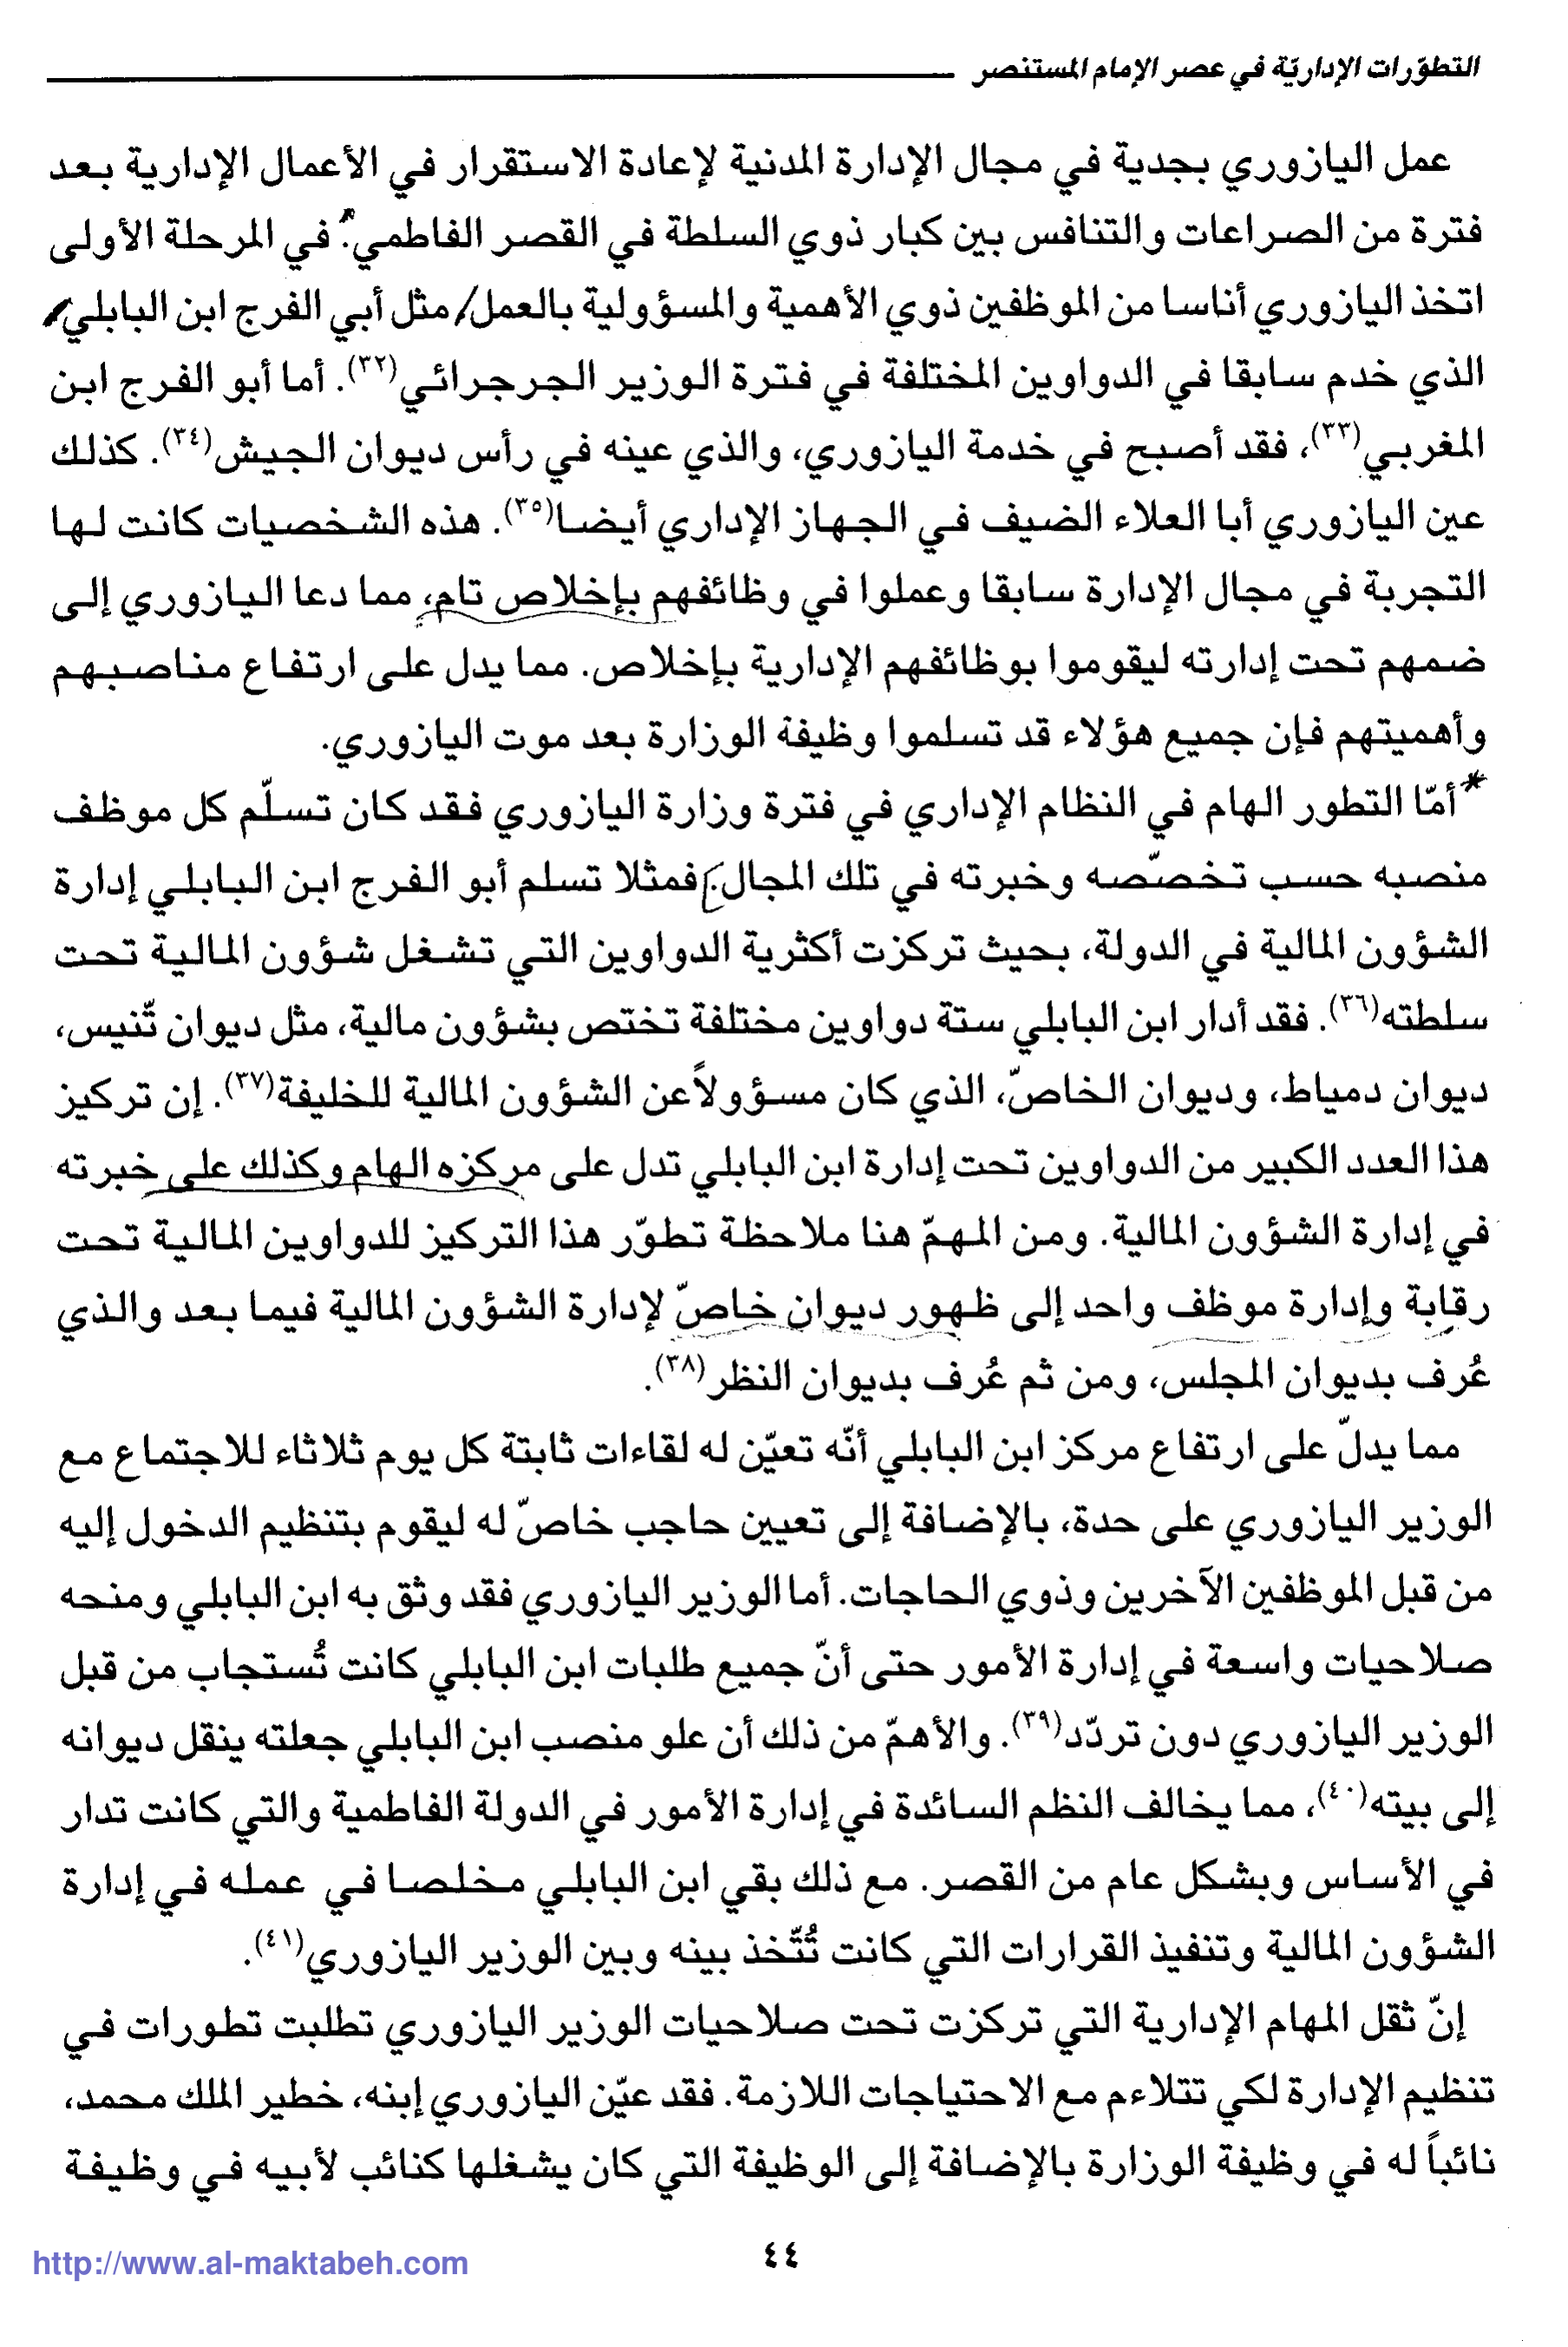 التطوّرات الإداريّة في عصر الإمام المستنصر
عمل اليازوري بجدية في مجال الإدارة المدنية لإعادة الاستقرار في الأعمال الإدارية بعد
فترة من الصراعات والتنافس بين كبار ذوي السلطة في القصر الفاطمي. في المرحلة الأولى
اتخذ اليازوري أناسا من الموظفين ذوي الأهمية والمسؤولية بالعمل/ مثل أبي الفرج ابن البابلي/
الذي خدم سابقا في الدواوين المختلفة في فترة الوزير الجرجرائي(٣٢). أما أبو الفرج ابن
المغربي(٣٣)، فقد أصبح في خدمة اليازوري، والذي عينه في رأس ديوان الجيش(٣٤). كذلك
عين اليازوري أبا العلاء الضيف في الجهاز الإداري أيضا(٣٥). هذه الشخصيات كانت لها
التجربة في مجال الإدارة سابقا وعملوا في وظائفهم بإخلاص تام، مما دعا اليازوري إلى
ضمهم تحت إدارته ليقوموا بوظائفهم الإدارية بإخلاص. مما يدل على ارتفاع مناصبهم
وأهميتهم فإن جميع هؤلاء قد تسلموا وظيفة الوزارة بعد موت اليازوري.
*أمّا التطور الهام في النظام الإداري في فترة وزارة اليازوري فقد كان تسلّم كل موظف
منصبه حسب تخصّصه وخبرته في تلك المجال. فمثلا تسلم أبو الفرج ابن البابلي إدارة
الشؤون المالية في الدولة، بحيث تركزت أكثرية الدواوين التي تشغل شؤون المالية تحت
سلطته(٣٦). فقد أدار ابن البابلي ستة دواوين مختلفة تختص بشؤون مالية، مثل ديوان تّنيس،
ديوان دمياط، وديوان الخاصّ، الذي كان مسؤولاً عن الشؤون المالية للخليفة(٣٧). إن تركيز
هذا العدد الكبير من الدواوين تحت إدارة ابن البابلي تدل على مركزه الهام وكذلك على خبرته
في إدارة الشؤون المالية. ومن المهمّ هنا ملاحظة تطوّر هذا التركيز للدواوين المالية تحت
رقابة وإدارة موظف واحد إلى ظهور ديوان خاصّ لإدارة الشؤون المالية فيما بعد والذي
عُرف بديوان المجلس، ومن ثم عُرف بديوان النظر(٣٨).
مما يدلّ على ارتفاع مركز ابن البابلي أنّه تعيّن له لقاءات ثابتة كل يوم ثلاثاء للاجتماع مع
الوزير اليازوري على حدة، بالإضافة إلى تعيين حاجب خاصّ له ليقوم بتنظيم الدخول إليه
من قبل الموظفين الآخرين وذوي الحاجات. أما الوزير اليازوري فقد وثق به ابن البابلي ومنحه
صلاحيات واسعة في إدارة الأمور حتى أنّ جميع طلبات ابن البابلي كانت تُستجاب من قبل
الوزير اليازوري دون تردّد(٣٩). والأهمّ من ذلك أن علو منصب ابن البابلي جعلته ينقل ديوانه
إلى بيته(٤٠)، مما يخالف النظم السائدة في إدارة الأمور في الدولة الفاطمية والتي كانت تدار
في الأساس وبشكل عام من القصر. مع ذلك بقي ابن البابلي مخلصا في عمله في إدارة
الشؤون المالية وتنفيذ القرارات التي كانت تُتّخذ بينه وبين الوزير اليازوري(٤١).
إنّ ثقل المهام الإدارية التي تركزت تحت صلاحيات الوزير اليازوري تطلبت تطورات في
تنظيم الإدارة لكي تتلاءم مع الاحتياجات اللازمة. فقد عيّن اليازوري إبنه، خطير الملك محمد،
نائباً له في وظيفة الوزارة بالإضافة إلى الوظيفة التي كان يشغلها كنائب لأبيه في وظيفة
٤٤
http://www.al-maktabeh.com